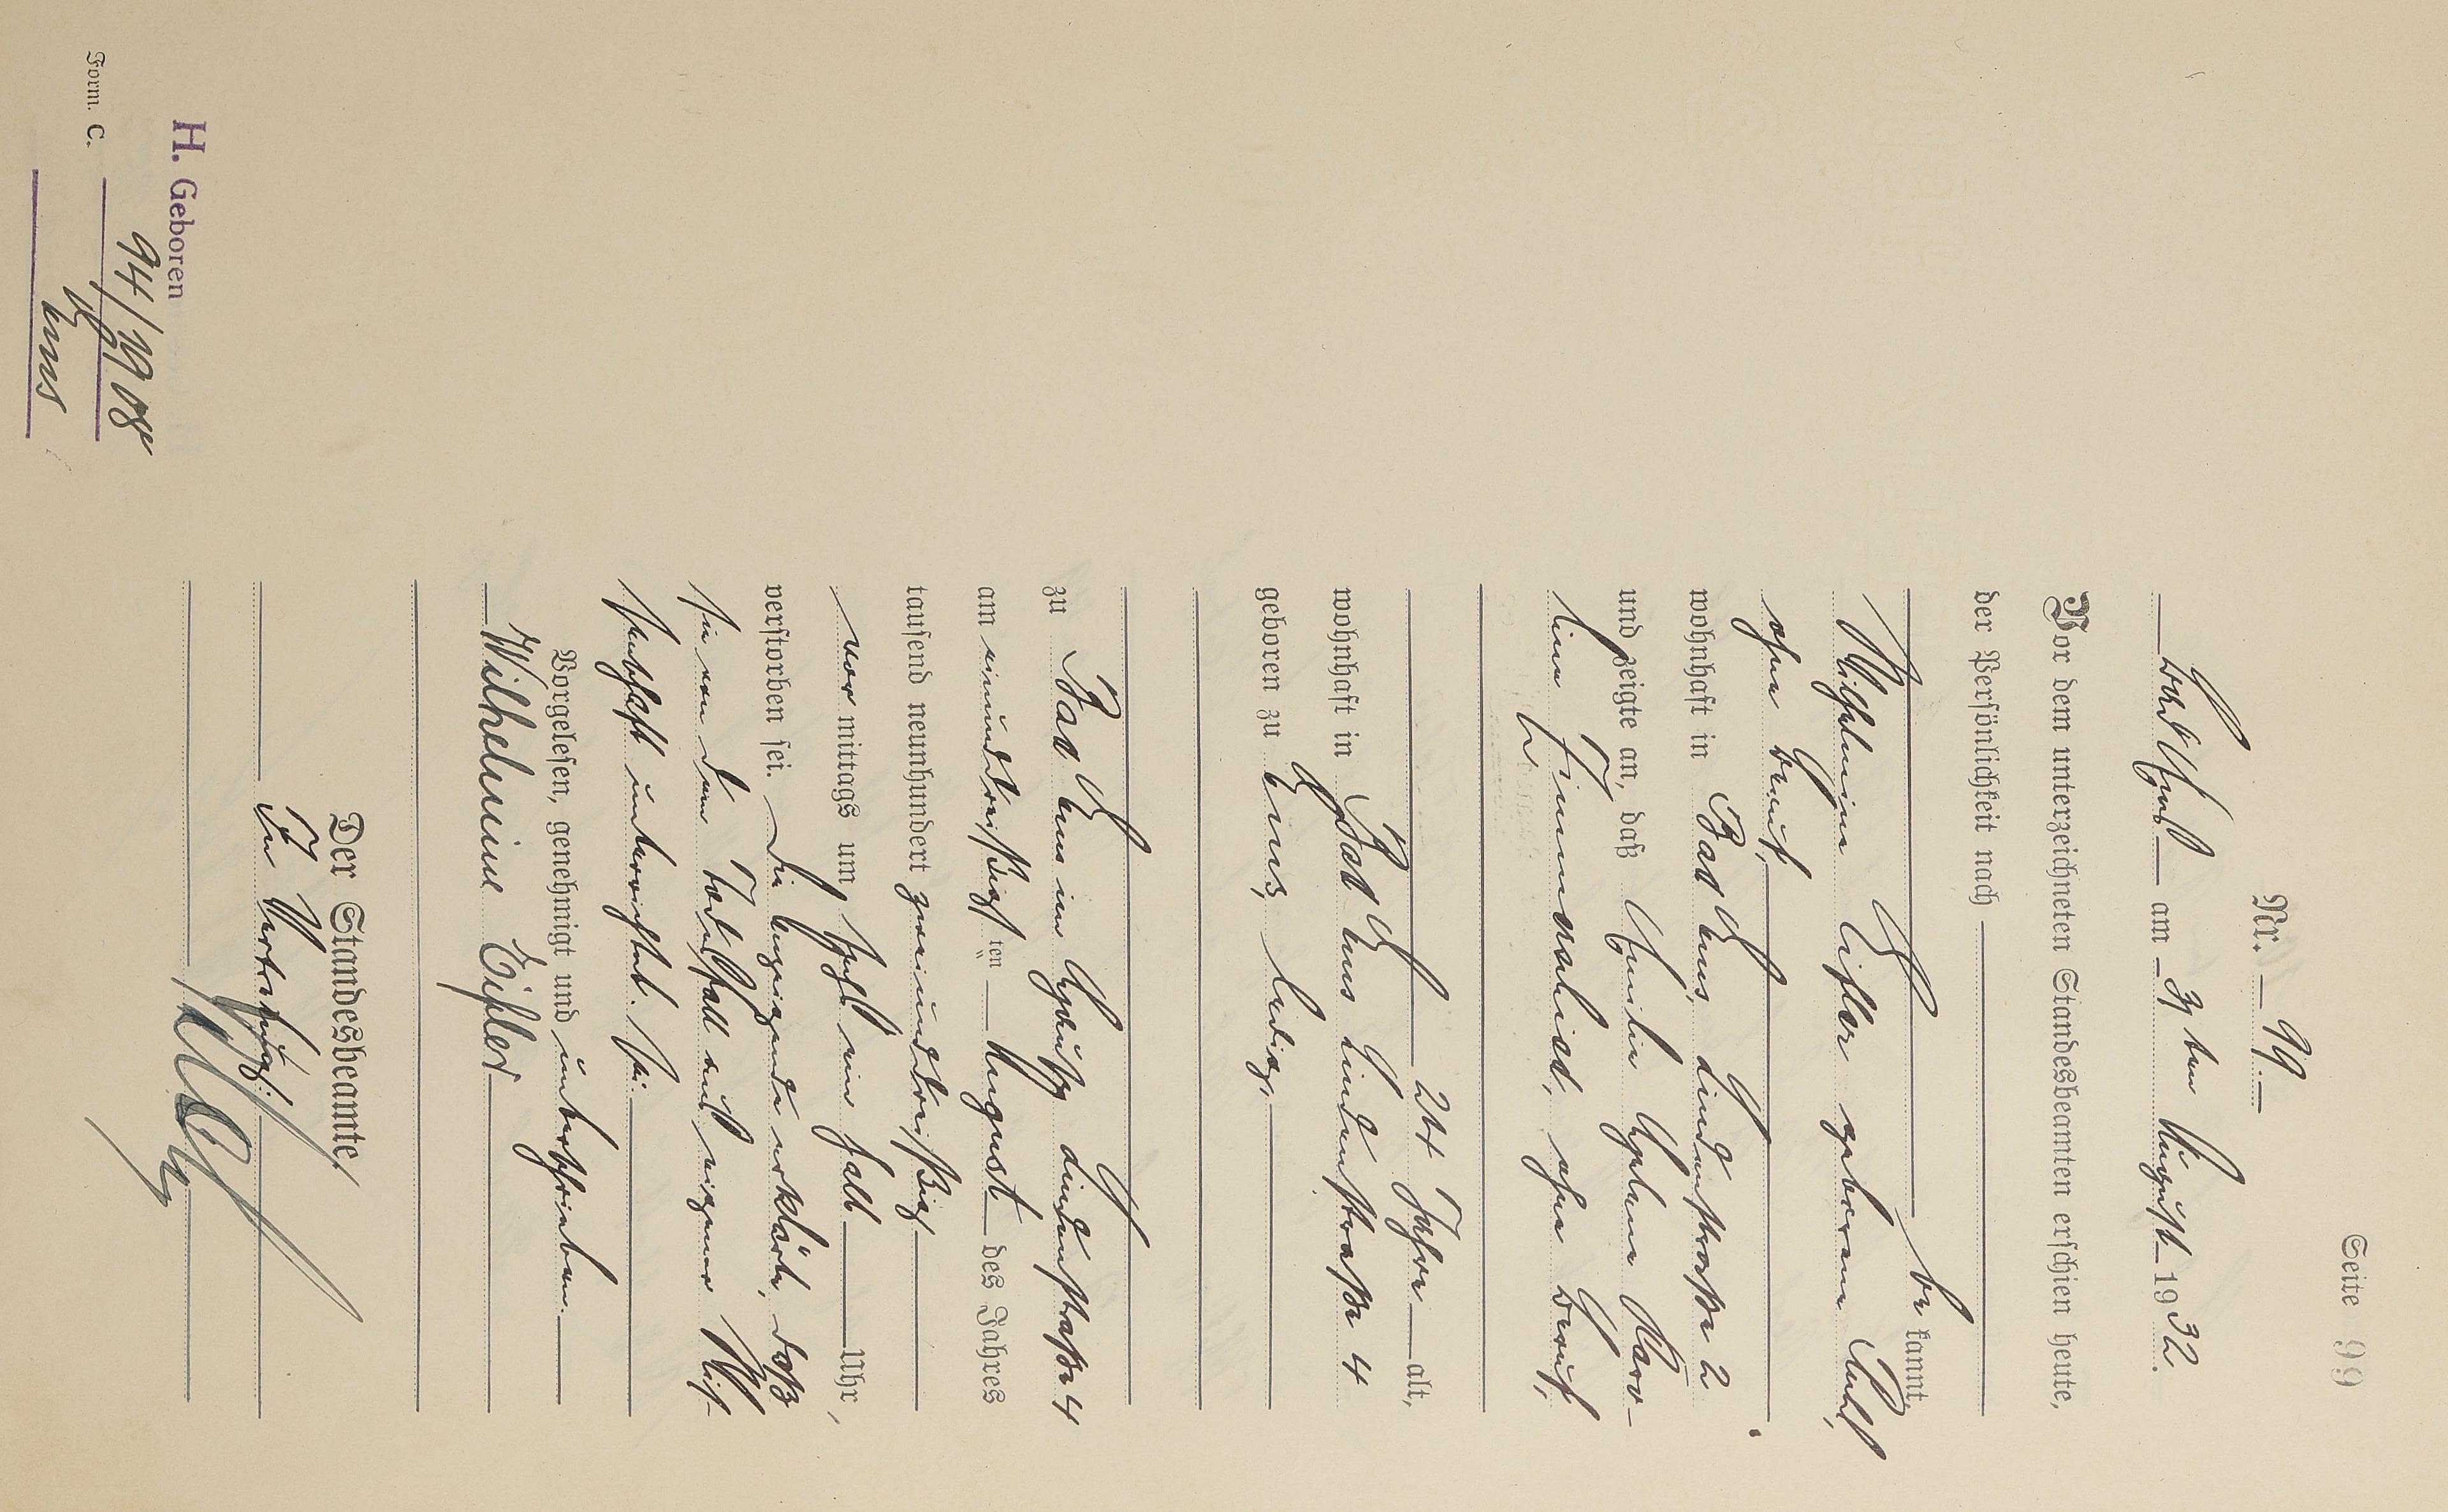 Seite 99
Nr. 99.
Bad Ems am 31ten August 1932.
Vor dem unterzeichneten Standesbeamten erschien heute,
der Persönlichkeit nach
bekannt,
Wilhelmine Eisler geborene
ohne Beruf,
wohnhaft in Bad Ems, Lindenstraße 2
und zeigte an, daß Emilie Helene Karo-
line Zimmerschied, ohne Beruf,
24 Jahre alt,
wohnhaft in Bad Ems Lindenstraße 4
geboren zu Ems, ledig,
zu Bad Ems im Hause Lindenstraße 4
am einunddreißigsten August des Jahres
tausend neunhundert zweiunddreißig
vor mittags um sechs ein halb Uhr,
verstorben sei. Die Anzeigende erklärte, daß
sie von dem Todesfall aus eigener Wis-
senschaft unterrichtet sei.
Vorgelesen, genehmigt und unterschrieben.
Wilhelmine Eisler
Der Standesbeamte,
In Vertretung:
H. Geboren
94/1908
Ems
Form. C.